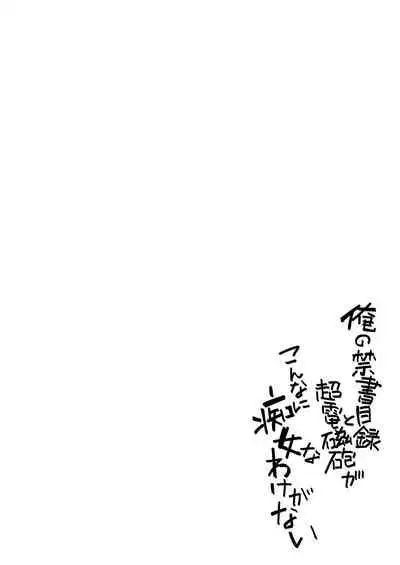 俺の禁書目録と
超電磁砲が
こんなに
病女な
わけがない